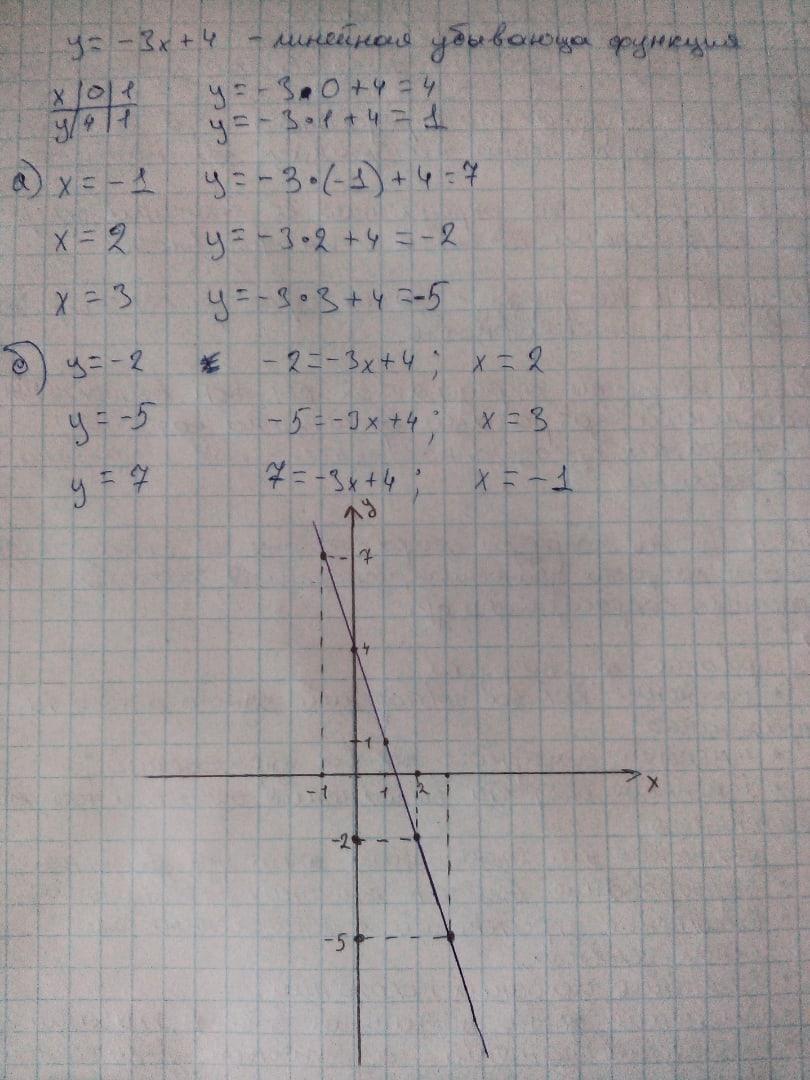 y = -3x + 4 - линейная убывающа функция
x | 0 | 1 y = -3•0 + 4 = 4
y | 4 | 1 y = -3•1 + 4 = 1
а) x = -1 y = -3•(-1) + 4 = 7
x = 2 y = -3•2 + 4 = -2
x = 3 y = -3•3 + 4 = -5
б) y = -2 -2 = -3x + 4; x = 2
y = -5 -5 = -3x + 4; x = 3
y = 7 7 = -3x + 4; x = -1
y
7
4
1
-1 1 2 x
-2
-5